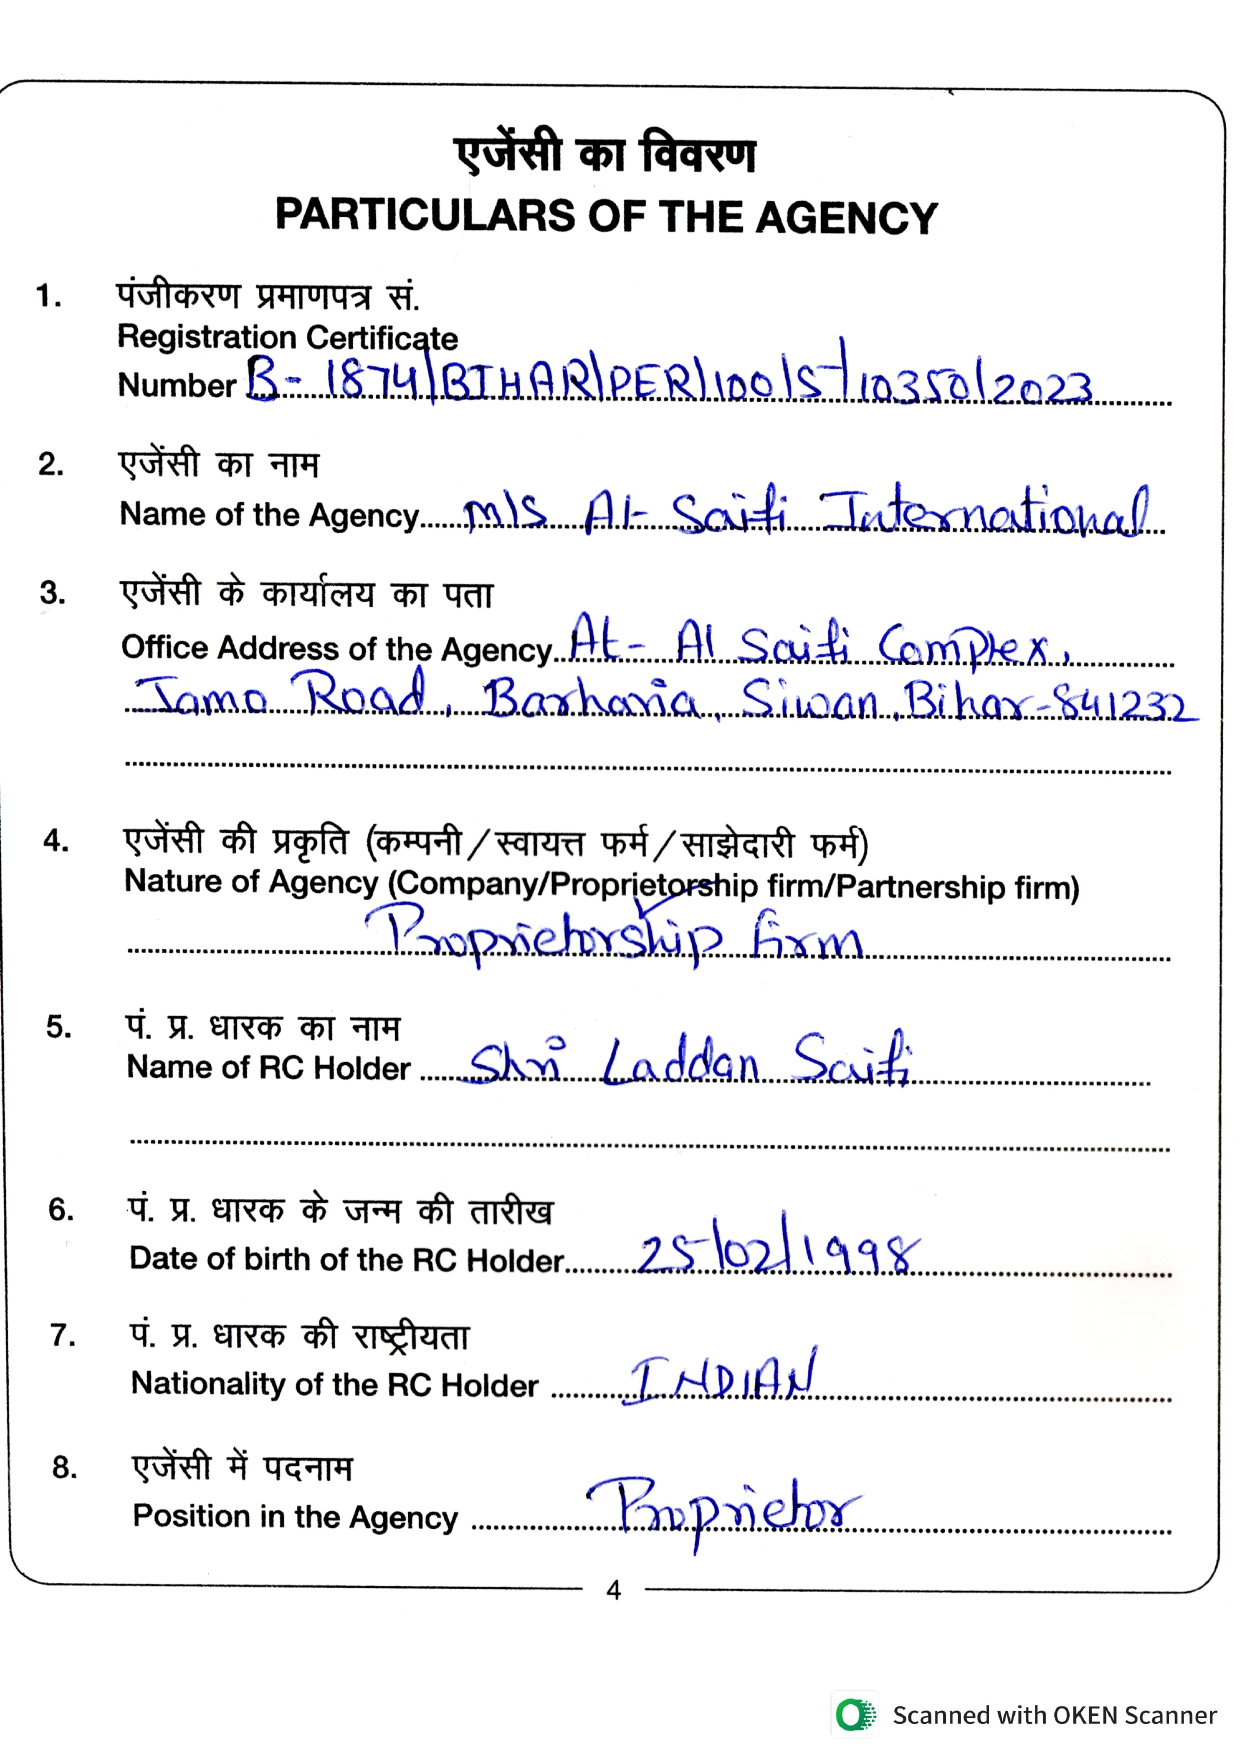 एजेंसी का विवरण
PARTICULARS OF THE AGENCY
1. पंजीकरण प्रमाणपत्र सं.
Registration Certificate
Number B-1874/BIHAR/PER/100/5/10350/2023
2. एजेंसी का नाम
Name of the Agency M/S Al-Saifi International
3. एजेंसी के कार्यालय का पता
Office Address of the Agency At- Al Saifi Complex,
Jamo Road, Barharia, Siwan, Bihar-841232
4. एजेंसी की प्रकृति (कम्पनी/स्वायत्त फर्म/साझेदारी फर्म)
Nature of Agency (Company/Proprietorship firm/Partnership firm)
Proprietorship firm
5. पं. प्र. धारक का नाम
Name of RC Holder Shri Laddan Saifi
6. पं. प्र. धारक के जन्म की तारीख
Date of birth of the RC Holder 25/02/1998
7. पं. प्र. धारक की राष्ट्रीयता
Nationality of the RC Holder INDIAN
8. एजेंसी में पदनाम
Position in the Agency Proprietor
4
Scanned with OKEN Scanner